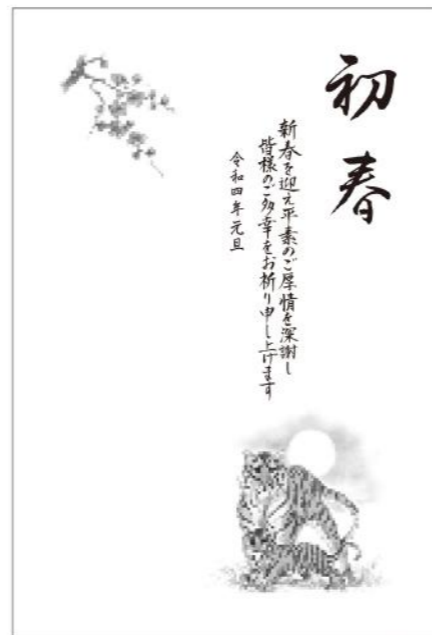 初春
新春を迎え平素のご厚情を深謝し
皆様のご多幸をお祈り申し上げます
令和四年元旦